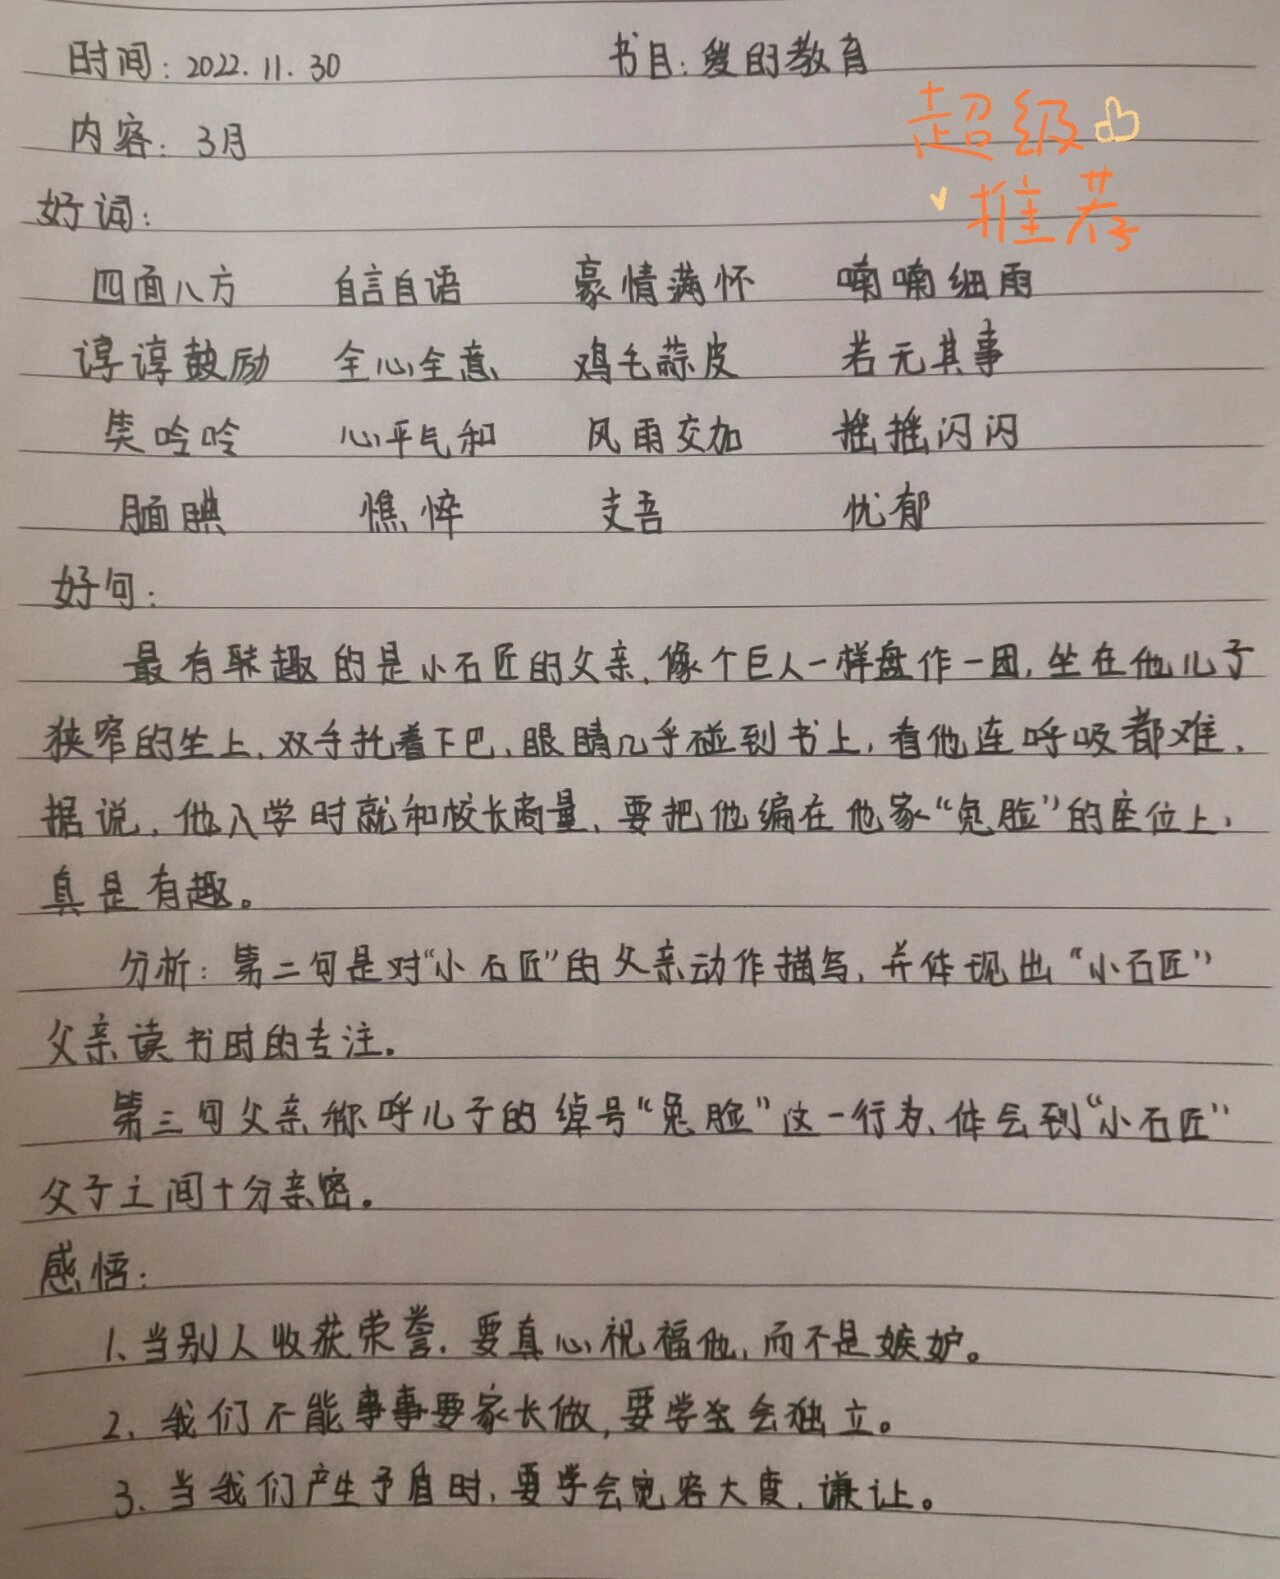 时间：2022.11.30 书目：爱的教育
内容：3月
超级
推荐
好词：
四面八方 自言自语 豪情满怀 喃喃细雨
谆谆鼓励 全心全意 鸡毛蒜皮 若无其事
笑吟吟 心平气和 风雨交加 摇摇闪闪
腼腆 憔悴 支吾 忧郁
好句：
最有趣的是小石匠的父亲，像个巨人一样盘作一团，坐在他儿子
狭窄的坐上，双手托着下巴，眼睛几乎碰到书上，看他连呼吸都难，
据说，他入学时就和校长商量，要把他编在他家“兔脸”的座位上，
真是有趣。
分析：第二句是对“小石匠”的父亲动作描写，并体现出“小石匠”
父亲读书时的专注。
第三句父亲称呼儿子的绰号“兔脸”这一行为，体会到“小石匠”
父子之间十分亲密。
感悟：
1、当别人收获荣誉，要真心祝福他，而不是嫉妒。
2、我们不能事事要家长做，要学会独立。
3、当我们产生矛盾时，要学会宽容大度，谦让。